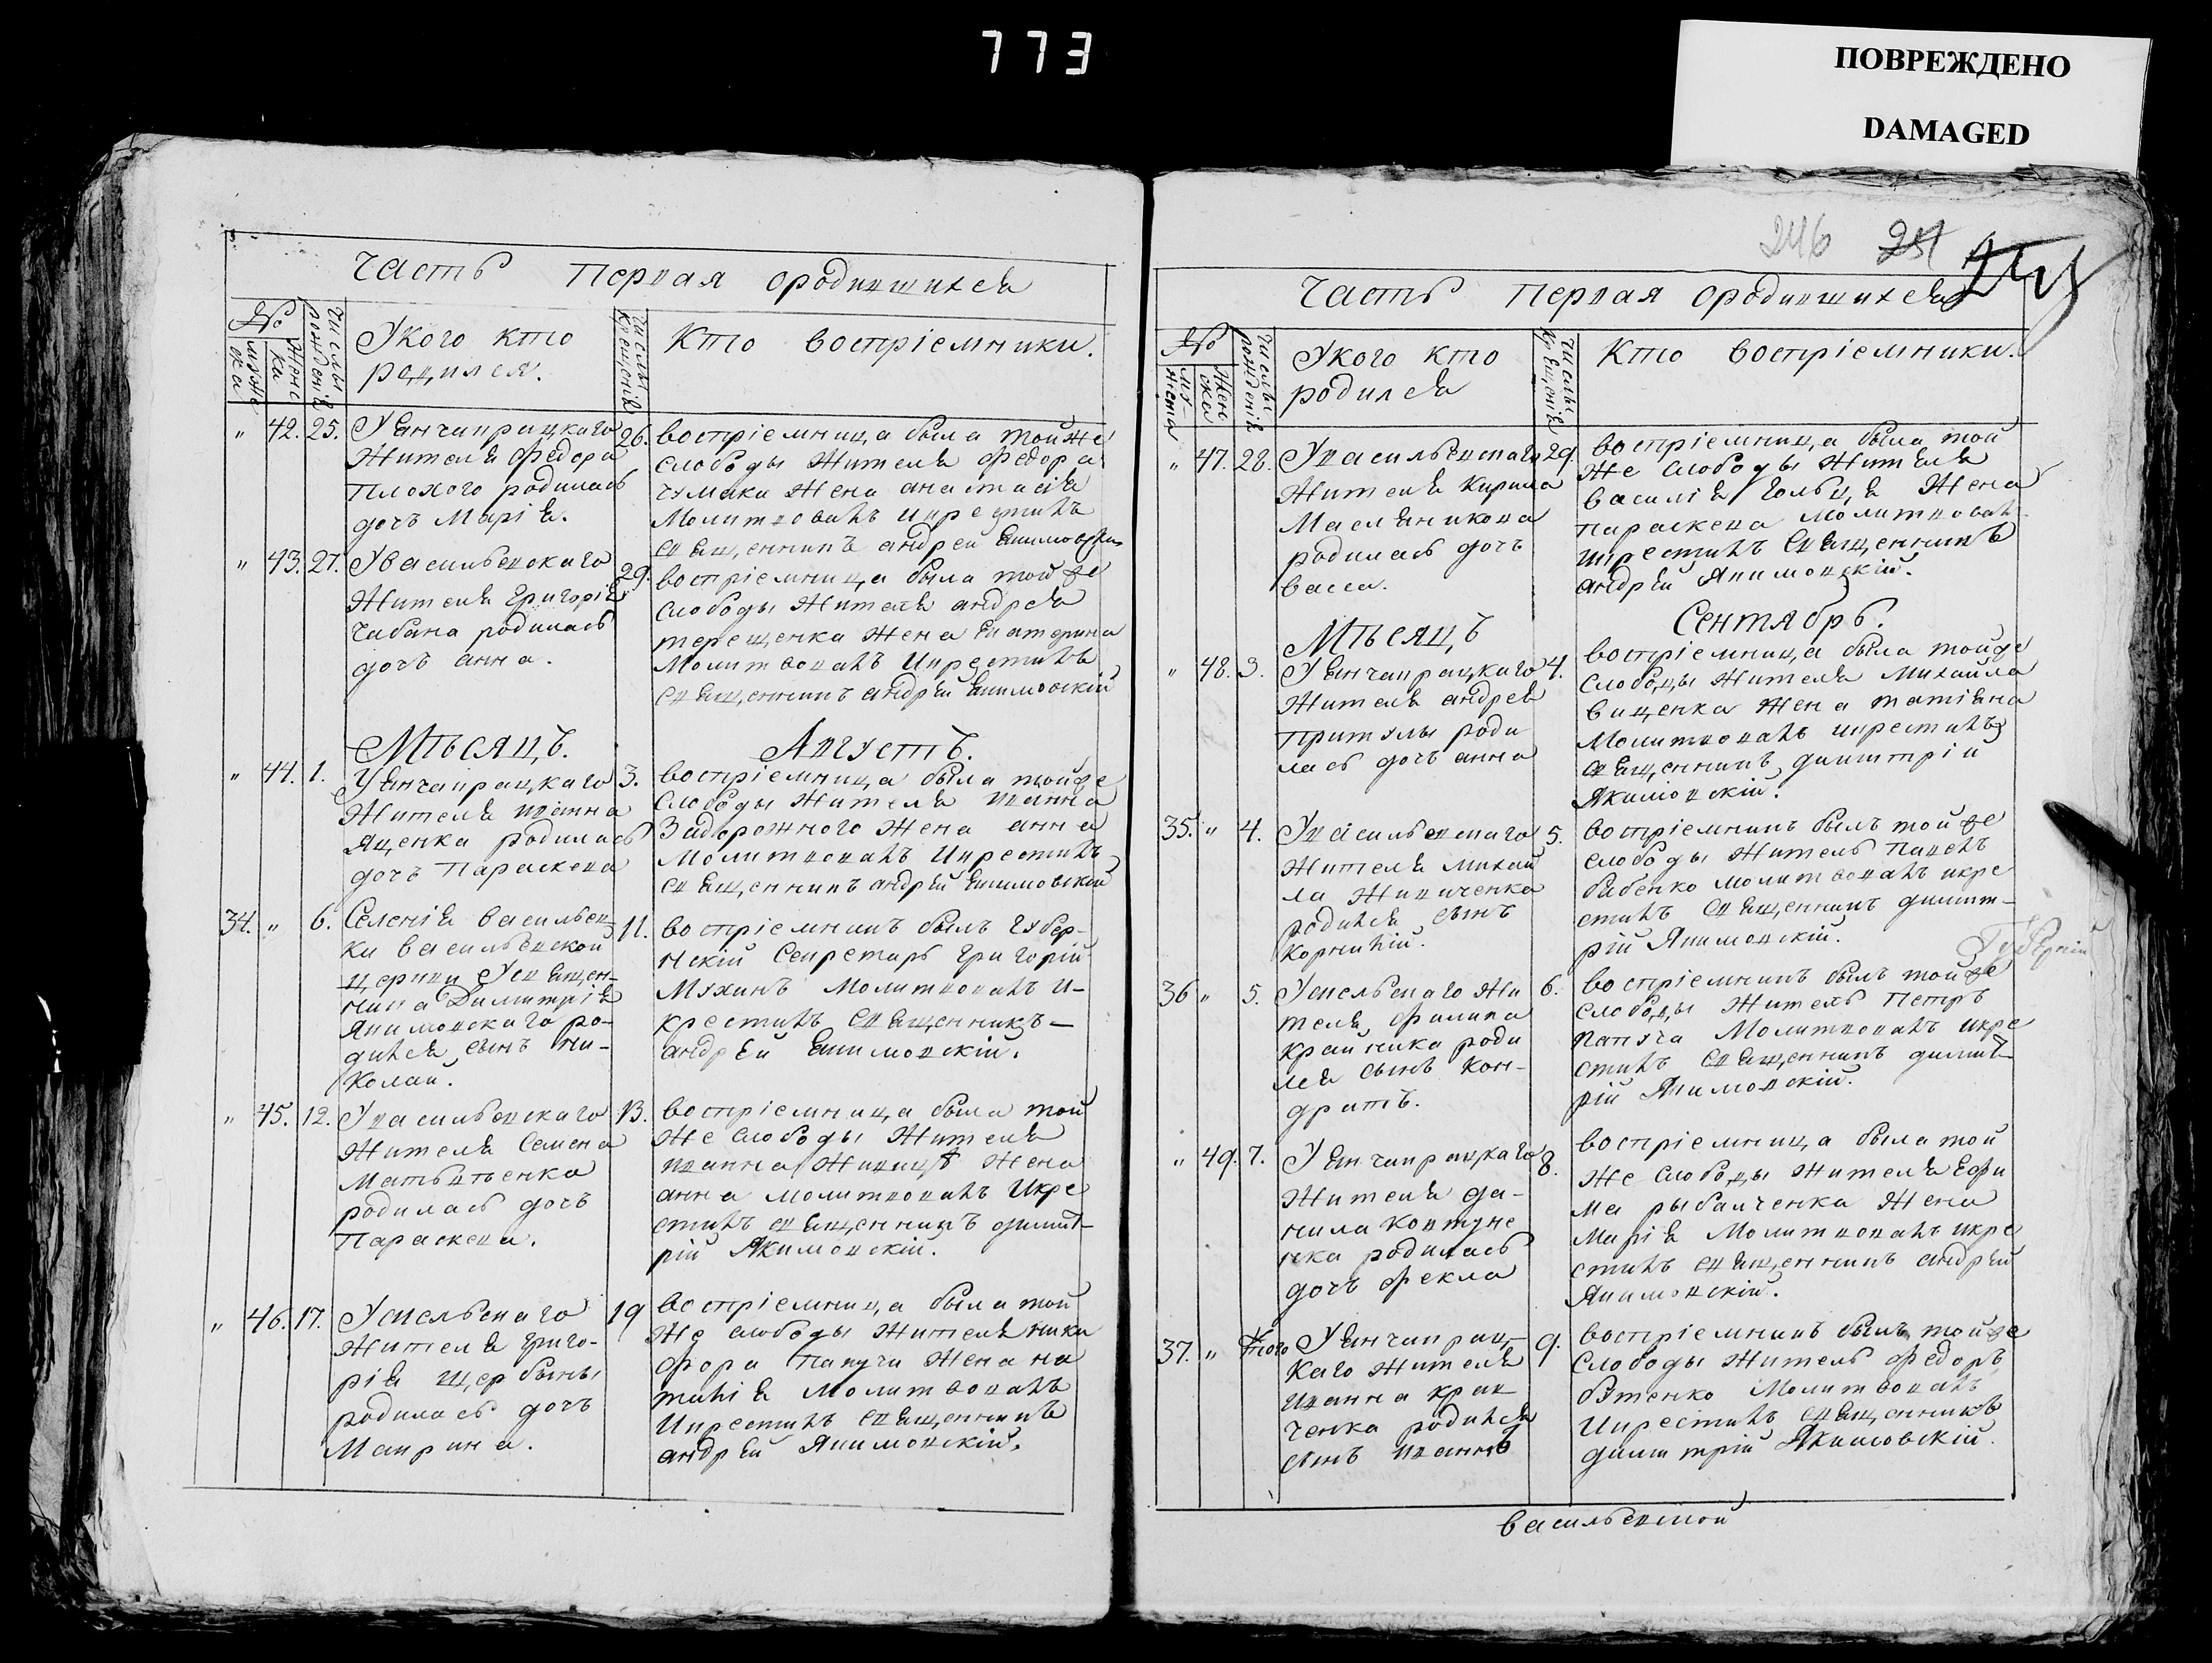 773
ПОВРЕЖДЕНО
DAMAGED
Часть Первая ородившихся
№
мужеска
женска
числы рождения
Укого кто
родился.
числы крещения
Кто восприемники.
" 42. 25.
Уянчапрацкаго
Жителя Федора
Плохого родилась
дочъ Марія.
26.
воспріемница была тойже
слободы Жителя Федора
чумака Жена анастасія
Молитвовалъ икрестилъ
священникъ андрей Якимовскій
" 43. 27.
Увасильевскаго
Жителя Григорія
Чабана родилась
дочъ анна.
29.
воспріемница была тойже
слободы Жителя андрея
терещенка Жена Екатерина
Молитвовалъ Икрестилъ
священникъ андрей Якимовскій
Мѣсяцъ. Августъ.
" 44. 1.
Уянчапрацкаго
Жителя Иванна
Яценка родилась
дочъ Параскева
3.
воспріемница была тойже
слободы Жителя Иванна
Задорожного Жена анна
Молитвовалъ Икрестилъ
священникъ андрей Якимовскій
34. " 6.
Селенія васильев
ки васильевской
церкви Усвящен-
ника Димитрія
Якимовскаго ро-
дился сынъ Ни-
колай.
11.
воспріемникъ былъ губер-
нскій Секретарь Григорій
Мухинъ Молитвовалъ И-
крестилъ священникъ-
андрей Якимовскій.
" 45. 12.
Увасильевскаго
Жителя Семена
Матвѣенка
родилась дочъ
Параскева.
13.
воспріемница была той
же слободы Жителя
Иванна Живицѣ Жена
анна Молитвовалъ Икре
стилъ священникъ димит-
рій Якимовскій.
" 46. 17.
Укисльскаго
Жителя григо-
рія щербины
родилась дочъ
Маврина.
19
воспріемница была той
же слободы Жителя ники
фора Папучи Жена на
талія Молитвовалъ
Икрестилъ священникъ
андрей Якимовскій.
246 251
Часть Первая ородившихся
№
мужеска
женска
числы рожденія
Укого кто
родился
числы крещенія
Кто воспріемники.
" 47. 28.
Увасильевскаго
Жителя Кирила
Масляникова
родилась дочъ
васса.
29.
воспріемница была той
же слободы Жителя
василія Гольця Жена
параскева Молитвовал
икрестилъ священникъ
андрей Якимовскій.
Мѣсяцъ Сентябрь.
" 48. 3.
Уянчапрацкаго
Жителя андрея
притулы роди
лась дочъ анна
4.
воспріемница была тойже
слободы Жителя Михайла
виценка Жена татіяна
Молитвовалъ икрестилъ
священникъ димитрій
Якимовскій.
35. " 4.
Увасильевскаго
Жителя Михай
ла Живиченка
родился сынъ
Корнилій.
5.
воспріемникъ былъ тойже
слободы Житель Павелъ
бабенко молитвовалъ икре
стилъ священникъ димит-
рій Якимовскій.
Губерніи
36 " 5.
Укисльскаго Жи
теля Филипа
крайника роди
лся сынъ Кон-
дратъ.
6.
воспріемникъ былъ тойже
слободы Житель Петръ
папуча Молитвовалъ икре
стилъ священникъ димит-
рій Якимовскій.
" 49. 7.
Уянчапрацкаго
Жителя да-
нила Ковтуне
нка родилась
дочъ Фекла
8.
воспріемница была той
же слободы Жителя Ефи
ма рыбалченка Жена
Марія Молитвовалъ икре
стилъ священникъ андрей
Якимовскій.
37. " того
Уянчапрац-
каго Жителя
Иванна крав
ченка родился
сынъ Иваннъ
9.
воспріемникъ былъ тойже
слободы Житель Федоръ
Молитвовалъ
Икрестилъ священникъ
димитрій Якимовскій.
васильевской